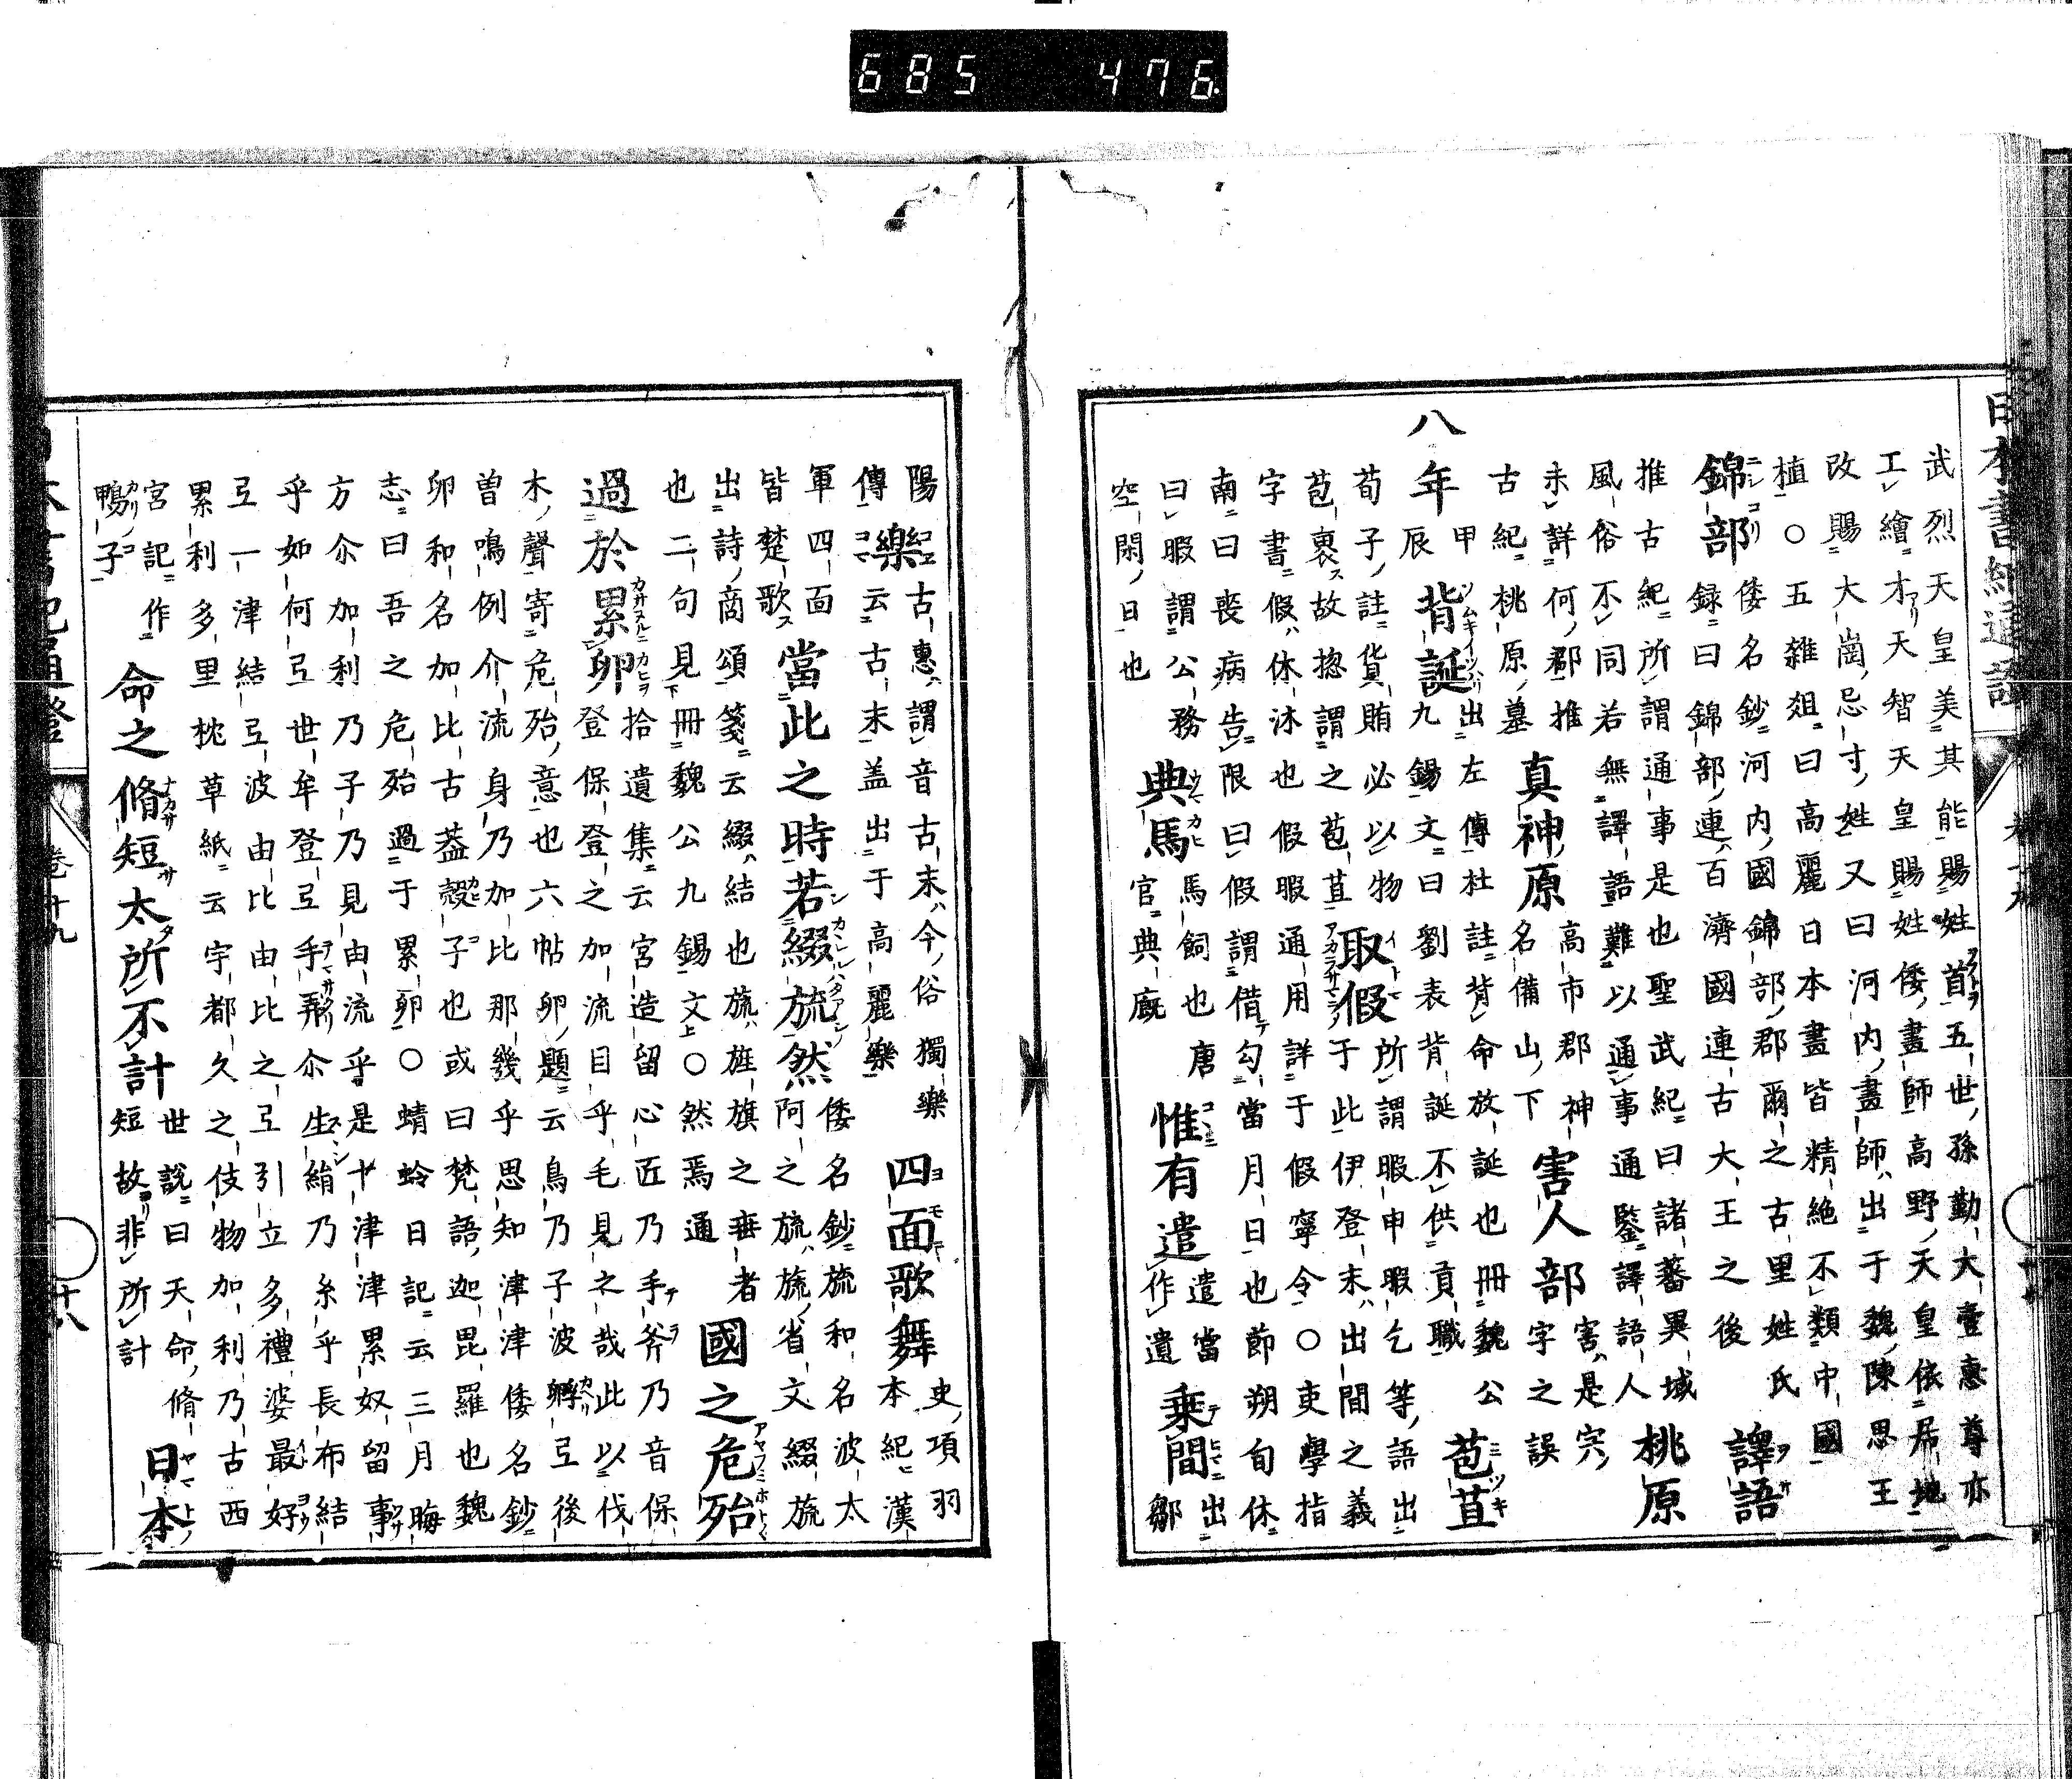 685 476
武烈天皇美其能賜姓首五世孫勤大壹惠尊亦
工繪才天智天皇賜姓倭畫師高野天皇依居地
改賜大崗忌寸姓又曰河内畫師出于魏陳思王
植〇五雜爼曰高麗日本畫皆精絶不類中國
錦部倭名鈔河内國錦部郡爾之古里姓氏
録曰錦部連百濟國連古大王之後
譯語
推古紀所謂通事是也聖武紀曰諸蕃異域
風俗不同若無譯語難以通事通鑒譯語人
桃原
未詳何郡推
古紀桃原墓
真神原
高市郡神
名備山下
害人部
害是宍
字之誤
八年
甲
辰
背誕
出左傳杜註背命放誕也冊魏公
九錫文曰劉表背誕不供貢職
苞苴
荀子註貨賄必以物
苞裹故揔謂之苞苴
取假
所謂暇申暇乞等語出
于此伊登末出間之義
字書假休沐也假暇通用詳于假寧令〇吏學指
南曰喪病告限曰假謂借勾當月日也節朔旬休
曰暇謂公務
空閑日也
典馬
馬飼也唐
官典廐
惟有遣
遣當
作遺
乗間
出
鄒
陽
傳
樂
紀古惠謂音古末今俗獨樂
云古末盖出于高麗樂
四面歌舞
史項羽
本紀漢
軍四面
皆楚歌
當此之時若綴旒然
倭名鈔旒和名波太
阿之旒旒省文綴旒
出詩商頌箋云綴結也旒旌旗之垂者
也二句見冊魏公九錫文〇然焉通
國之危殆
過於累卵
拾遺集云宮造留心匠乃手斧乃音保
登保登之加流目乎毛見之哉此以伐
木聲寄危殆意也六帖卵題云鳥乃子波孵弖後
曽鳴例介流身乃加比那幾乎思知津津倭名鈔
卵和名加比古葢殻子也或曰梵語迦毘羅也魏
志曰吾之危殆過于累卵〇蜻蛉日記云三月晦
方尒加利乃子乃見由流乎是十津津累奴留事
乎如何弖世牟登弖手弄尒生絹乃糸乎長布結
弖一津結弖波由比由比之弖引立多禮婆最好
累利多里枕草紙云宇都久之伎物加利乃古西
宮記作
鴨子
命之脩短太所不計
世説曰天命脩
短故非所計
日本
卷十九
十八